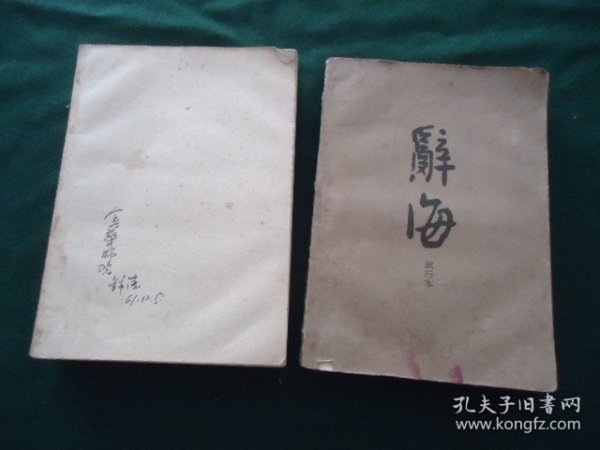 师院
61.12.5
辭海
试行本
孔夫子旧书网
www.kongfz.com